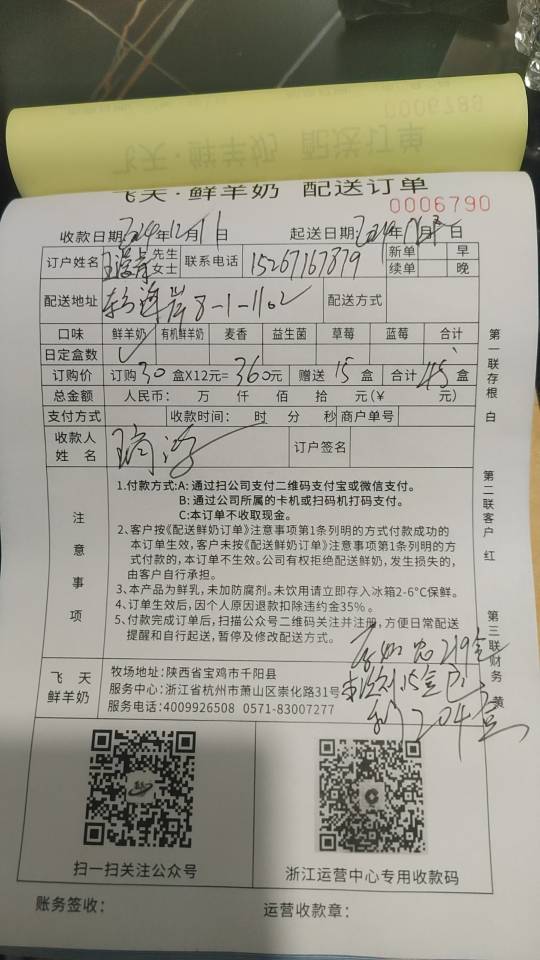 0006789
飞天·鲜羊奶 配送订单
飞天·鲜羊奶 配送订单
0006790
收款日期:2024年12月11日 起送日期:2024年 月 日
订户姓名 先生 女士 联系电话 15267167879 新单 早 续单 晚
配送地址 8-1-1102 配送方式
口味 鲜羊奶 有机鲜羊奶 麦香 益生菌 草莓 蓝莓 合计
日定盒数 ✓
订购价 订购30盒X12元=360元 赠送15盒 合计45盒
总金额 人民币: 万 仟 佰 拾 元(￥ 元)
支付方式 收款时间: 时 分 秒 商户单号
收款人姓名 订户签名
注意事项
1.付款方式:A: 通过扫公司支付二维码支付宝或微信支付。
B: 通过公司所属的卡机或扫码机打码支付。
C:本订单不收取现金。
2、客户按《配送鲜奶订单》注意事项第1条列明的方式付款成功的
本订单生效,客户未按《配送鲜奶订单》注意事项第1条列明的方
式付款的,本订单不生效。公司有权拒绝配送鲜奶,发生损失的,
由客户自行承担。
3、本产品为鲜乳，未加防腐剂。未饮用请立即存入冰箱2-6°C保鲜。
4、订单生效后,因个人原因退款扣除违约金35%。
5、付款完成订单后,扫描公众号二维码关注并注册,方便日常配送
提醒和自行起送，暂停及修改配送方式。
219盒
15盒
204盒
飞天鲜羊奶
牧场地址:陕西省宝鸡市千阳县
服务中心:浙江省杭州市萧山区崇化路31号
服务电话:4009926508 0571-83007277
第一联存根 白
第二联客户 红
第三联财务 黄
扫一扫关注公众号
浙江运营中心专用收款码
账务签收:
运营收款章: